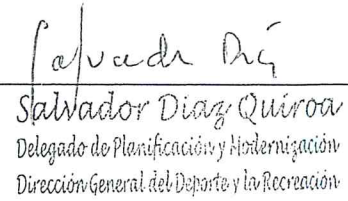 Salvador Diaz Quiroa
Delegado de Planificación y Modernización
Dirección General del Deporte y la Recreación